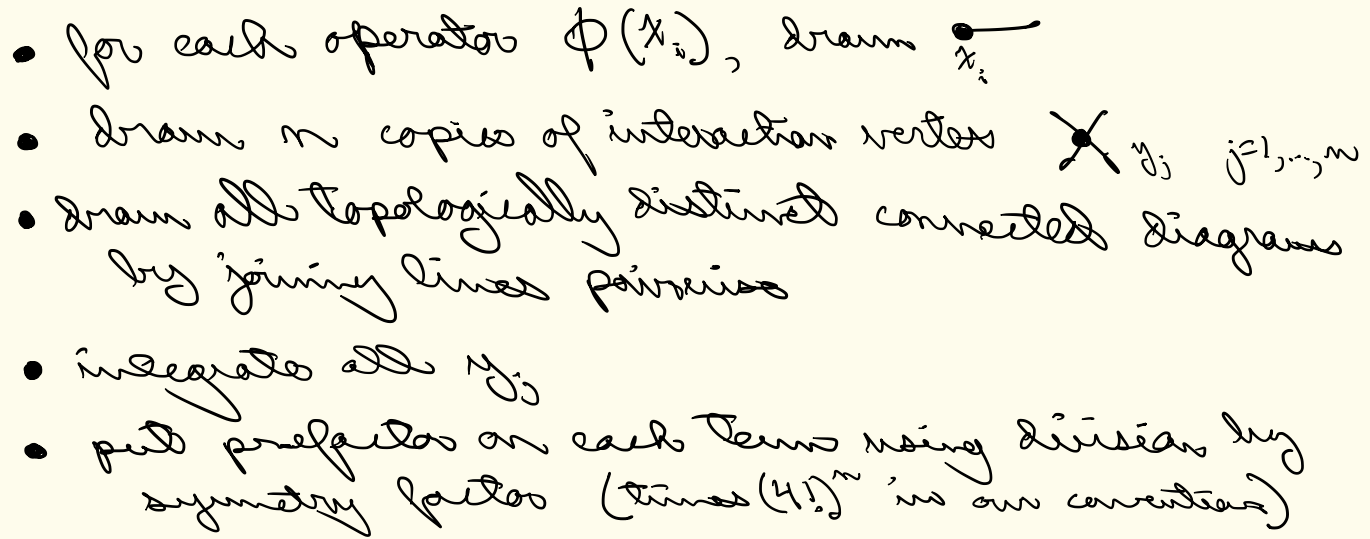 • for each operator ϕ(x_i), draw x_i
• draw n copies of interaction vertex y_j j=1,...,n
• draw all topologically distinct connected diagrams
by joining lines pairwise
• integrate all y_j
• put prefactor on each term using division by
symmetry factor (times (4!)^n in our convention)